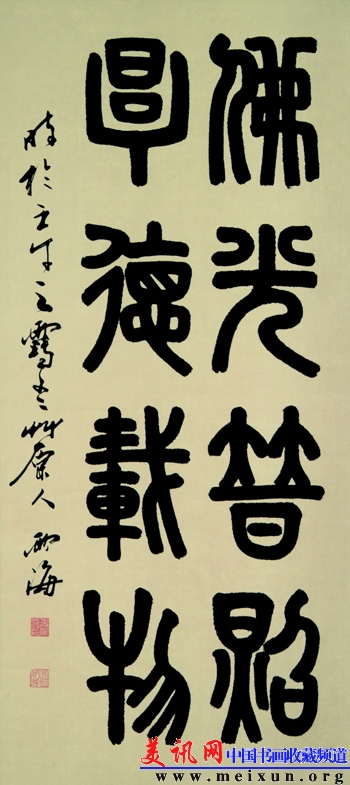 佛光普照
厚德載物
時於壬午之人海
美讯网 中国书画收藏频道
www.meixun.org